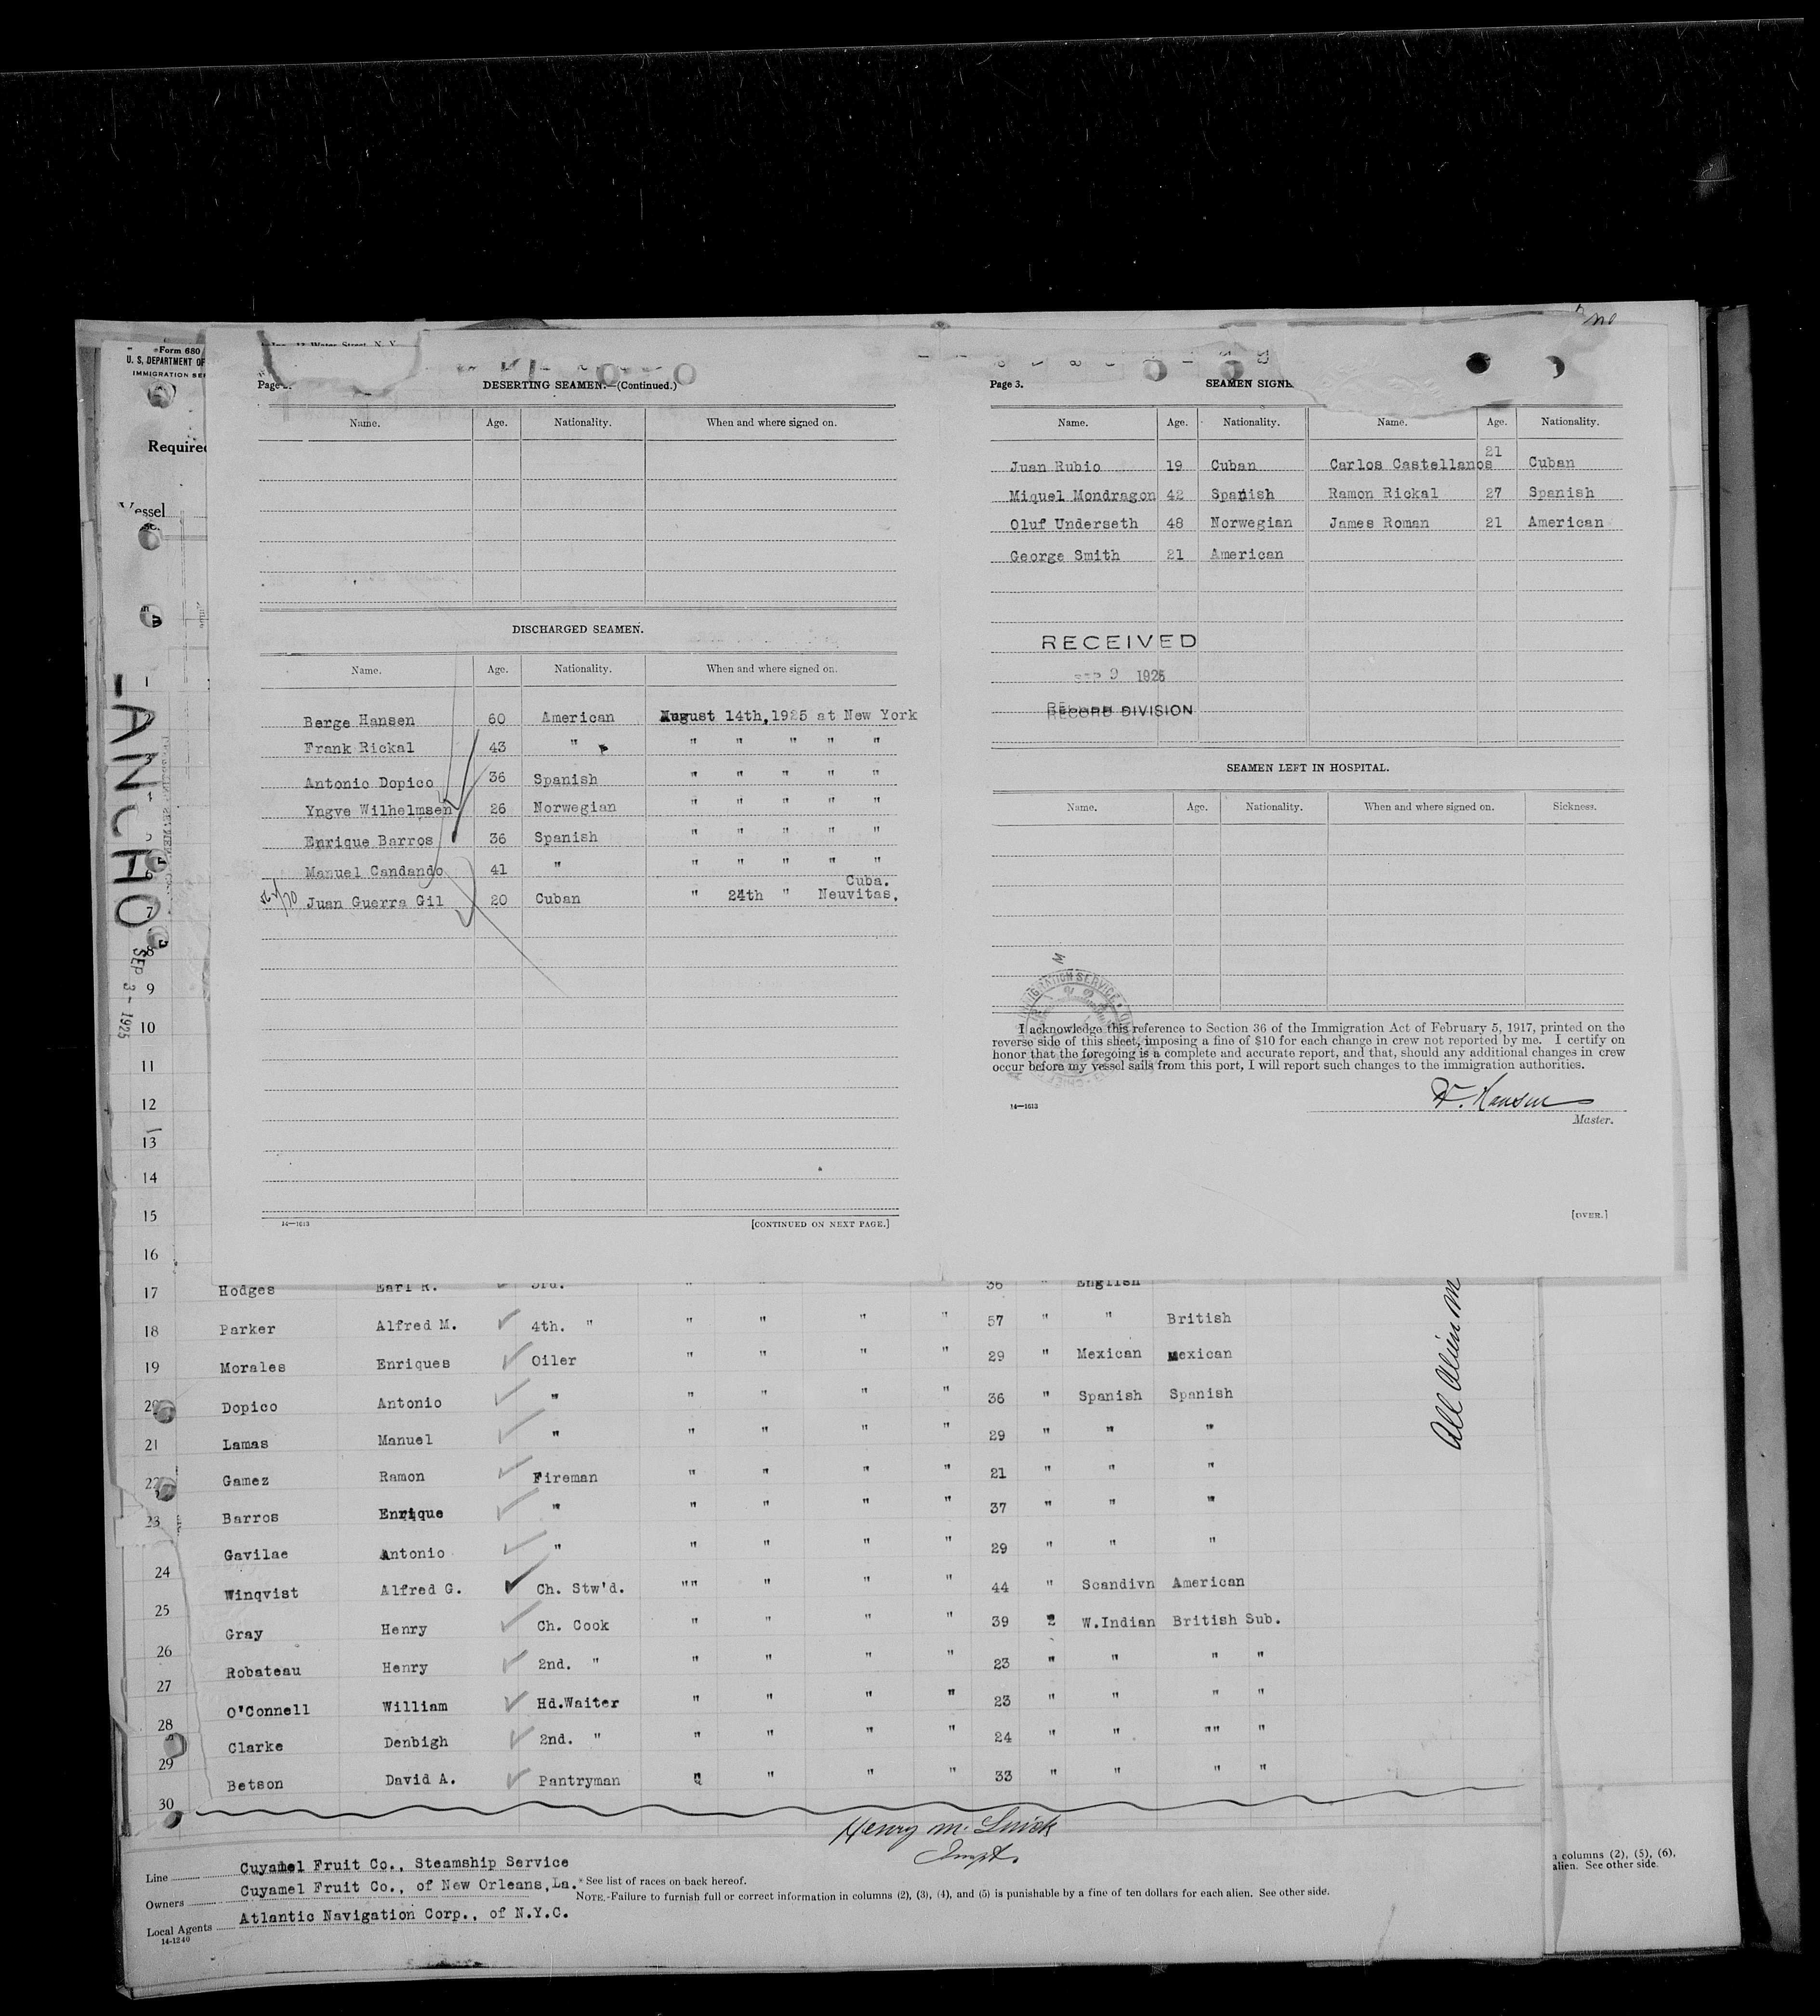 Form 680
U. S. DEPARTMENT OF
IMMIGRATION SER
Required
Vessel
SEP 3 - 1925
DESERTING SEAMEN.—(Continued.)
Name. Age. Nationality. When and where signed on.
DISCHARGED SEAMEN.
Name. Age. Nationality. When and where signed on.
Berge Hansen 60 American August 14th, 1925 at New York
Frank Rickal 43 " " " " " "
Antonio Dopico 36 Spanish " " " " "
Yngve Wilhelmsen 26 Norwegian " " " " "
Enrique Barros 36 Spanish " " " " "
Manuel Candando 41 " " " " " "
Cuba.
Juan Guerra Gil 20 Cuban " 24th " Neuvitas,
14—1613 [CONTINUED ON NEXT PAGE.]
Page 3. SEAMEN SIGNE
Name. Age. Nationality. Name. Age. Nationality.
Juan Rubio 19 Cuban Carlos Castellanos 21 Cuban
Miquel Mondragon 42 Spanish Ramon Rickal 27 Spanish
Oluf Underseth 48 Norwegian James Roman 21 American
George Smith 21 American
RECEIVED
SEP 9 1925
RECORD DIVISION
SEAMEN LEFT IN HOSPITAL.
Name. Age. Nationality. When and where signed on. Sickness.
I acknowledge this reference to Section 36 of the Immigration Act of February 5, 1917, printed on the
reverse side of this sheet, imposing a fine of $10 for each change in crew not reported by me. I certify on
honor that the foregoing is a complete and accurate report, and that, should any additional changes in crew
occur before my vessel sails from this port, I will report such changes to the immigration authorities.
14—1613
Master.
[OVER.]
9
10
11
12
13
14
15
16
17 Hodges Earl R. 3rd. " 36 " English
18 Parker Alfred M. 4th. " " " " " 57 " " British
19 Morales Enriques Oiler " " " " 29 " Mexican Mexican
20 Dopico Antonio " " " " " 36 " Spanish Spanish
21 Lamas Manuel " " " " " 29 " " "
22 Gamez Ramon Fireman " " " " 21 " " "
23 Barros Enrique " " " " " 37 " " "
Gavilae Antonio " " " " " 29 " " "
24
Winqvist Alfred G. Ch. Stw'd. "" " " " 44 " Scandivn American
25
Gray Henry Ch. Cook " " " " 39 " W.Indian British Sub.
26
Robateau Henry 2nd. " " " " " 23 " " " "
27
O'Connell William Hd.Waiter " " " " 23 " " " "
28
Clarke Denbigh 2nd. " " " " " 24 " " "" "
29
Betson David A. Pantryman " " " " 33 " " " "
30
Line Cuyamel Fruit Co., Steamship Service
Owners Cuyamel Fruit Co., of New Orleans, La.
Local Agents Atlantic Navigation Corp., of N.Y.C.
14-1240
* See list of races on back hereof.
NOTE.-Failure to furnish full or correct information in columns (2), (3), (4), and (5) is punishable by a fine of ten dollars for each alien. See other side.
columns (2), (5), (6),
alien. See other side.